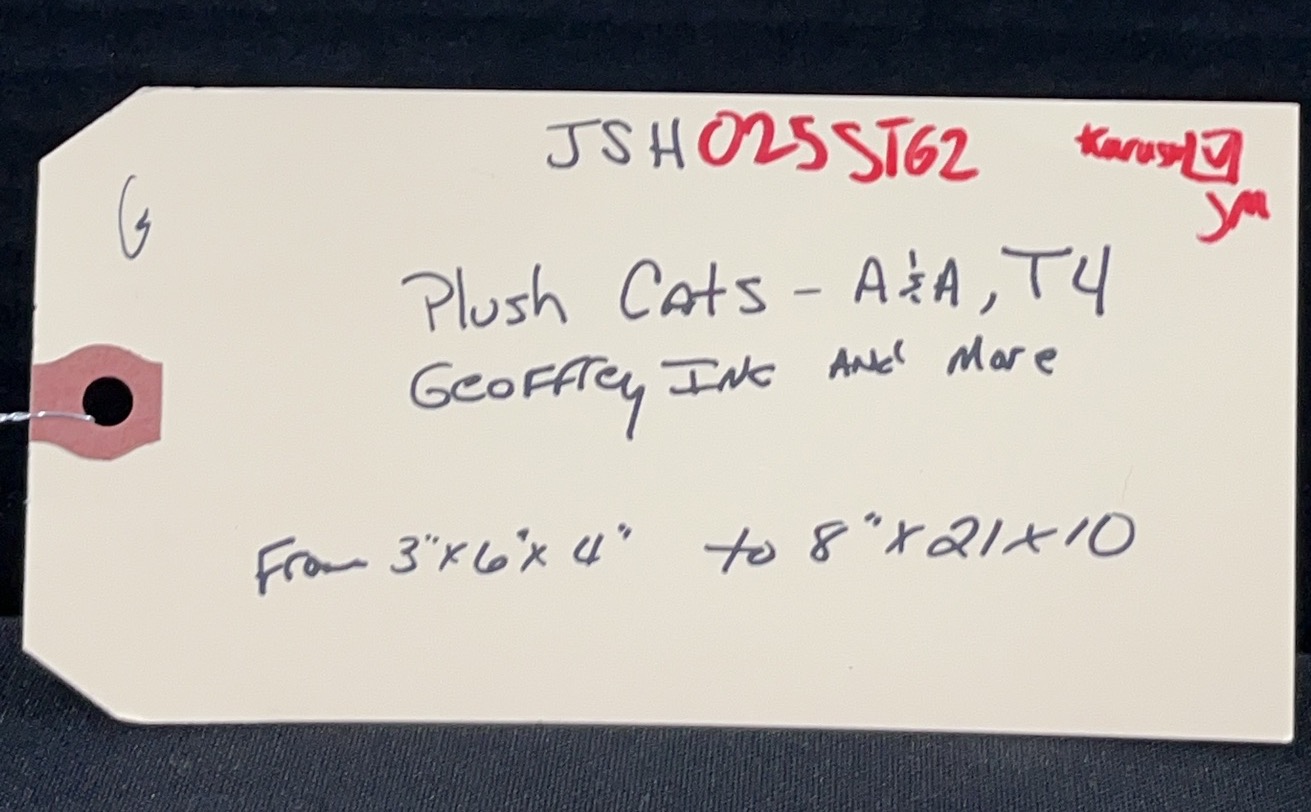 JSH025ST62
Karusel
JM
G
Plush Cats - A&A, T4
Geoffrey Inc And More
From 3"x6"x4" to 8"x21x10